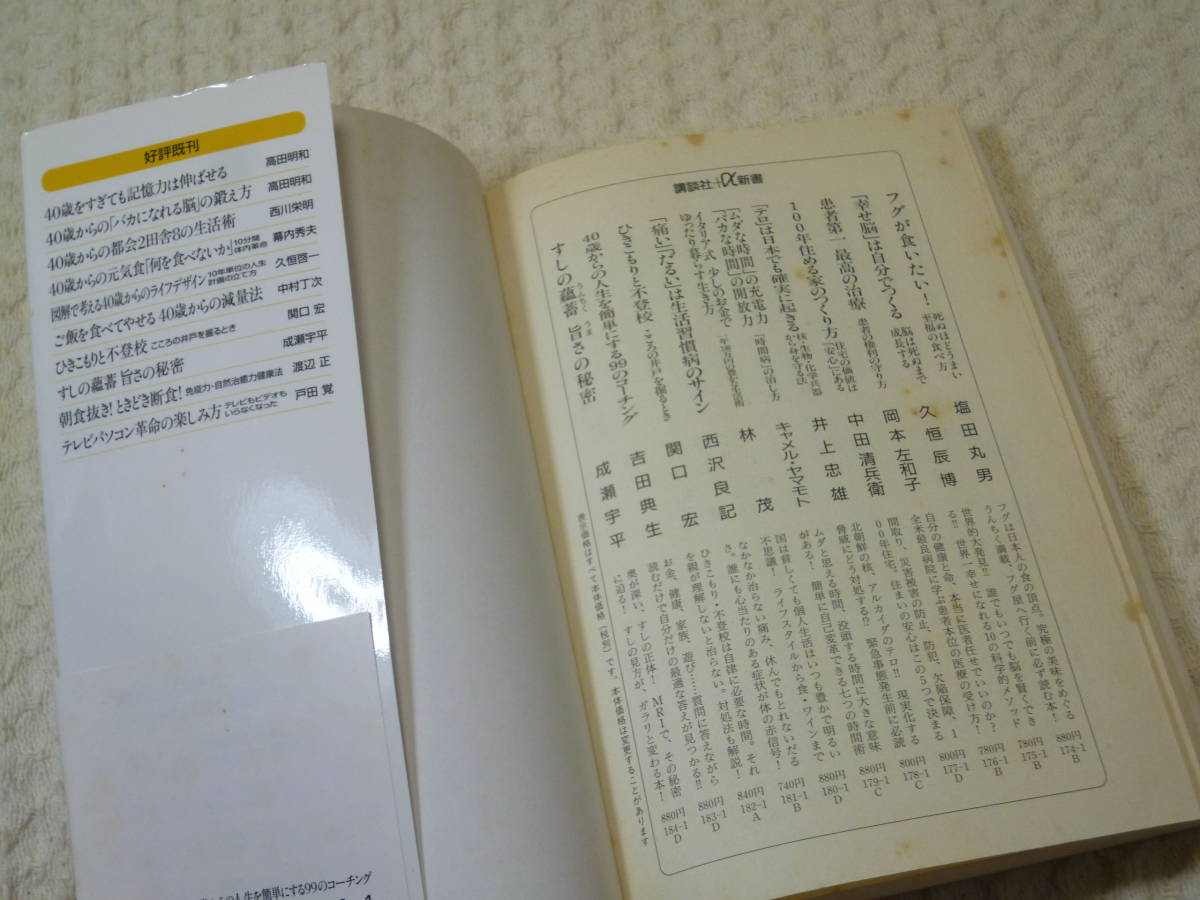 好評既刊
40歳をすぎても記憶力は伸ばせる 高田明和
40歳からの「バカになれる脳」の鍛え方 高田明和
40歳からの都会2田舎8の生活術 西川栄明
40歳からの元気食「何を食べないか」 10分間体内革命 幕内秀夫
図解で考える40歳からのライフデザイン 10年単位の人生計画の立て方 久恒啓一
ご飯を食べてやせる 40歳からの減量法 中村丁次
ひきこもりと不登校 こころの井戸を掘るとき 関口 宏
すしの蘊蓄 旨さの秘密 成瀬宇平
朝食抜き!ときどき断食! 免疫力・自然治癒力健康法 渡辺 正
テレビパソコン革命の楽しみ方 テレビもビデオもいらなくなった 戸田 覚
人生を簡単にする99のコーチング
講談社+α新書
フグが食いたい! 死ぬほどうまい至福の食べ方 塩田丸男 フグは日本人の食の頂点。究極の美味をめぐるうんちく満載、フグ屋へ行く前に必ず読む本! 880円 174-1 B
「幸せ脳」は自分でつくる 脳は死ぬまで成長する 久恒辰博 世界的大発見!! 誰でもいつでも脳を賢くできる!! 世界一幸せになれる10の科学的メソッド 780円 175-1 B
患者第一 最高の治療 患者の権利の守り方 岡本左和子 自分の健康と命、本当に医者任せでいいのか? 全米最良病院に学ぶ患者本位の医療の受け方! 780円 176-1 B
100年住める家のつくり方 住宅の価値は「安心」にある 中田清兵衛 間取り、災害被害の防止、防犯、欠陥保障、100年住宅、住まいの安心はこの5つで決まる 800円 177-1 D
「テロ」は日本でも確実に起きる 核・生物・化学兵器から身を守る法 井上忠雄 北朝鮮の核、アルカイダのテロ!! 現実化する脅威にどう対処する!? 緊急事態発生前に必読 800円 178-1 C
「ムダな時間」の充電力「バカな時間」の開放力 「時間病」の治し方 キャメル・ヤマモト ムダと思える時間、没頭する時間に大きな意味がある! 簡単に自己変革できる七つの時間術 880円 179-1 C
イタリア式 少しのお金でゆったり暮らす生き方 林 茂 国は貧しくても個人生活はいつも豊かで明るい不思議! ライフスタイルから食・ワインまで 880円 180-1 D
「痛い」「だるい」は生活習慣病のサイン 西沢良記 なかなか治らない痛み、休んでもとれないだるさ。誰にも心当たりのある症状が体の赤信号! 740円 181-1 B
ひきこもりと不登校 こころの井戸を掘るとき 関口 宏 ひきこもり・不登校は自律に必要な時間。それを親が理解しないと治らない。対処法も解説! 840円 182-1 A
40歳からの人生を簡単にする99のコーチング 吉田典生 お金、健康、家族、遊び……質問に答えながら読むだけで自分だけの最適な答えが見つかる!! 880円 183-1 D
すしの蘊蓄 うんちく 旨さの秘密 うま 成瀬宇平 奥が深い、すしの正体! MRIで、その秘密に迫る! すしの見方が、ガラリと変わる本! 880円 184-1 D
表示価格はすべて本体価格(税別)です。本体価格は変更することがあります